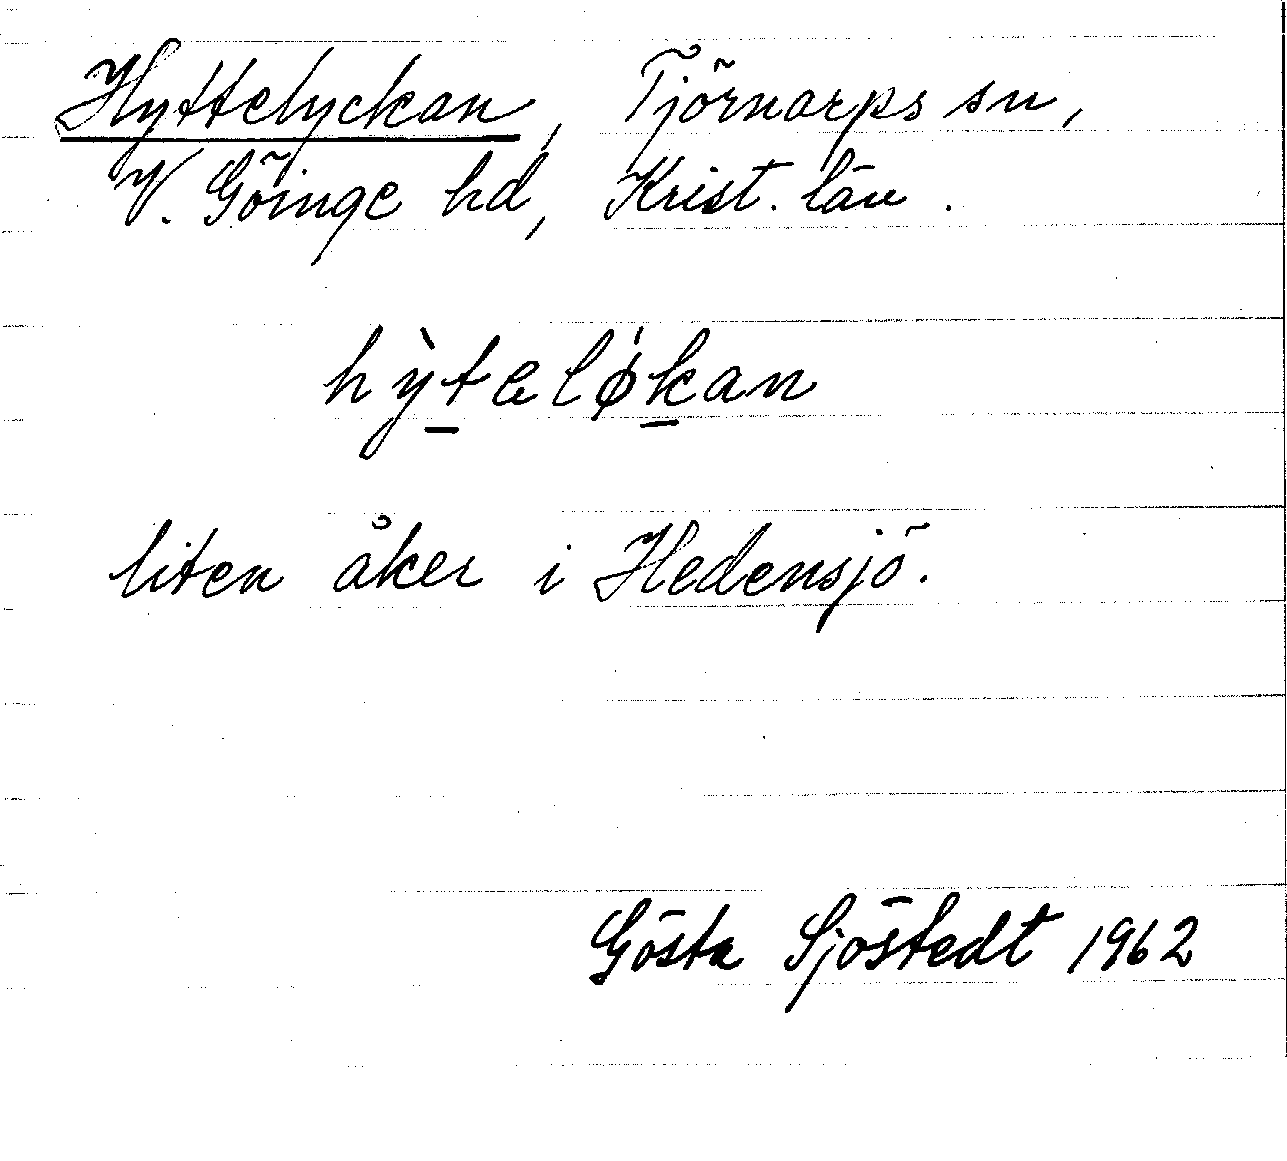 Hyttelyckan, Tjörnarps sn,
V. Göinge hd, Krist. län.
hỳt̲elø̍k̲an
liten åker i Hedensjö.
Gösta Sjöstedt 1962